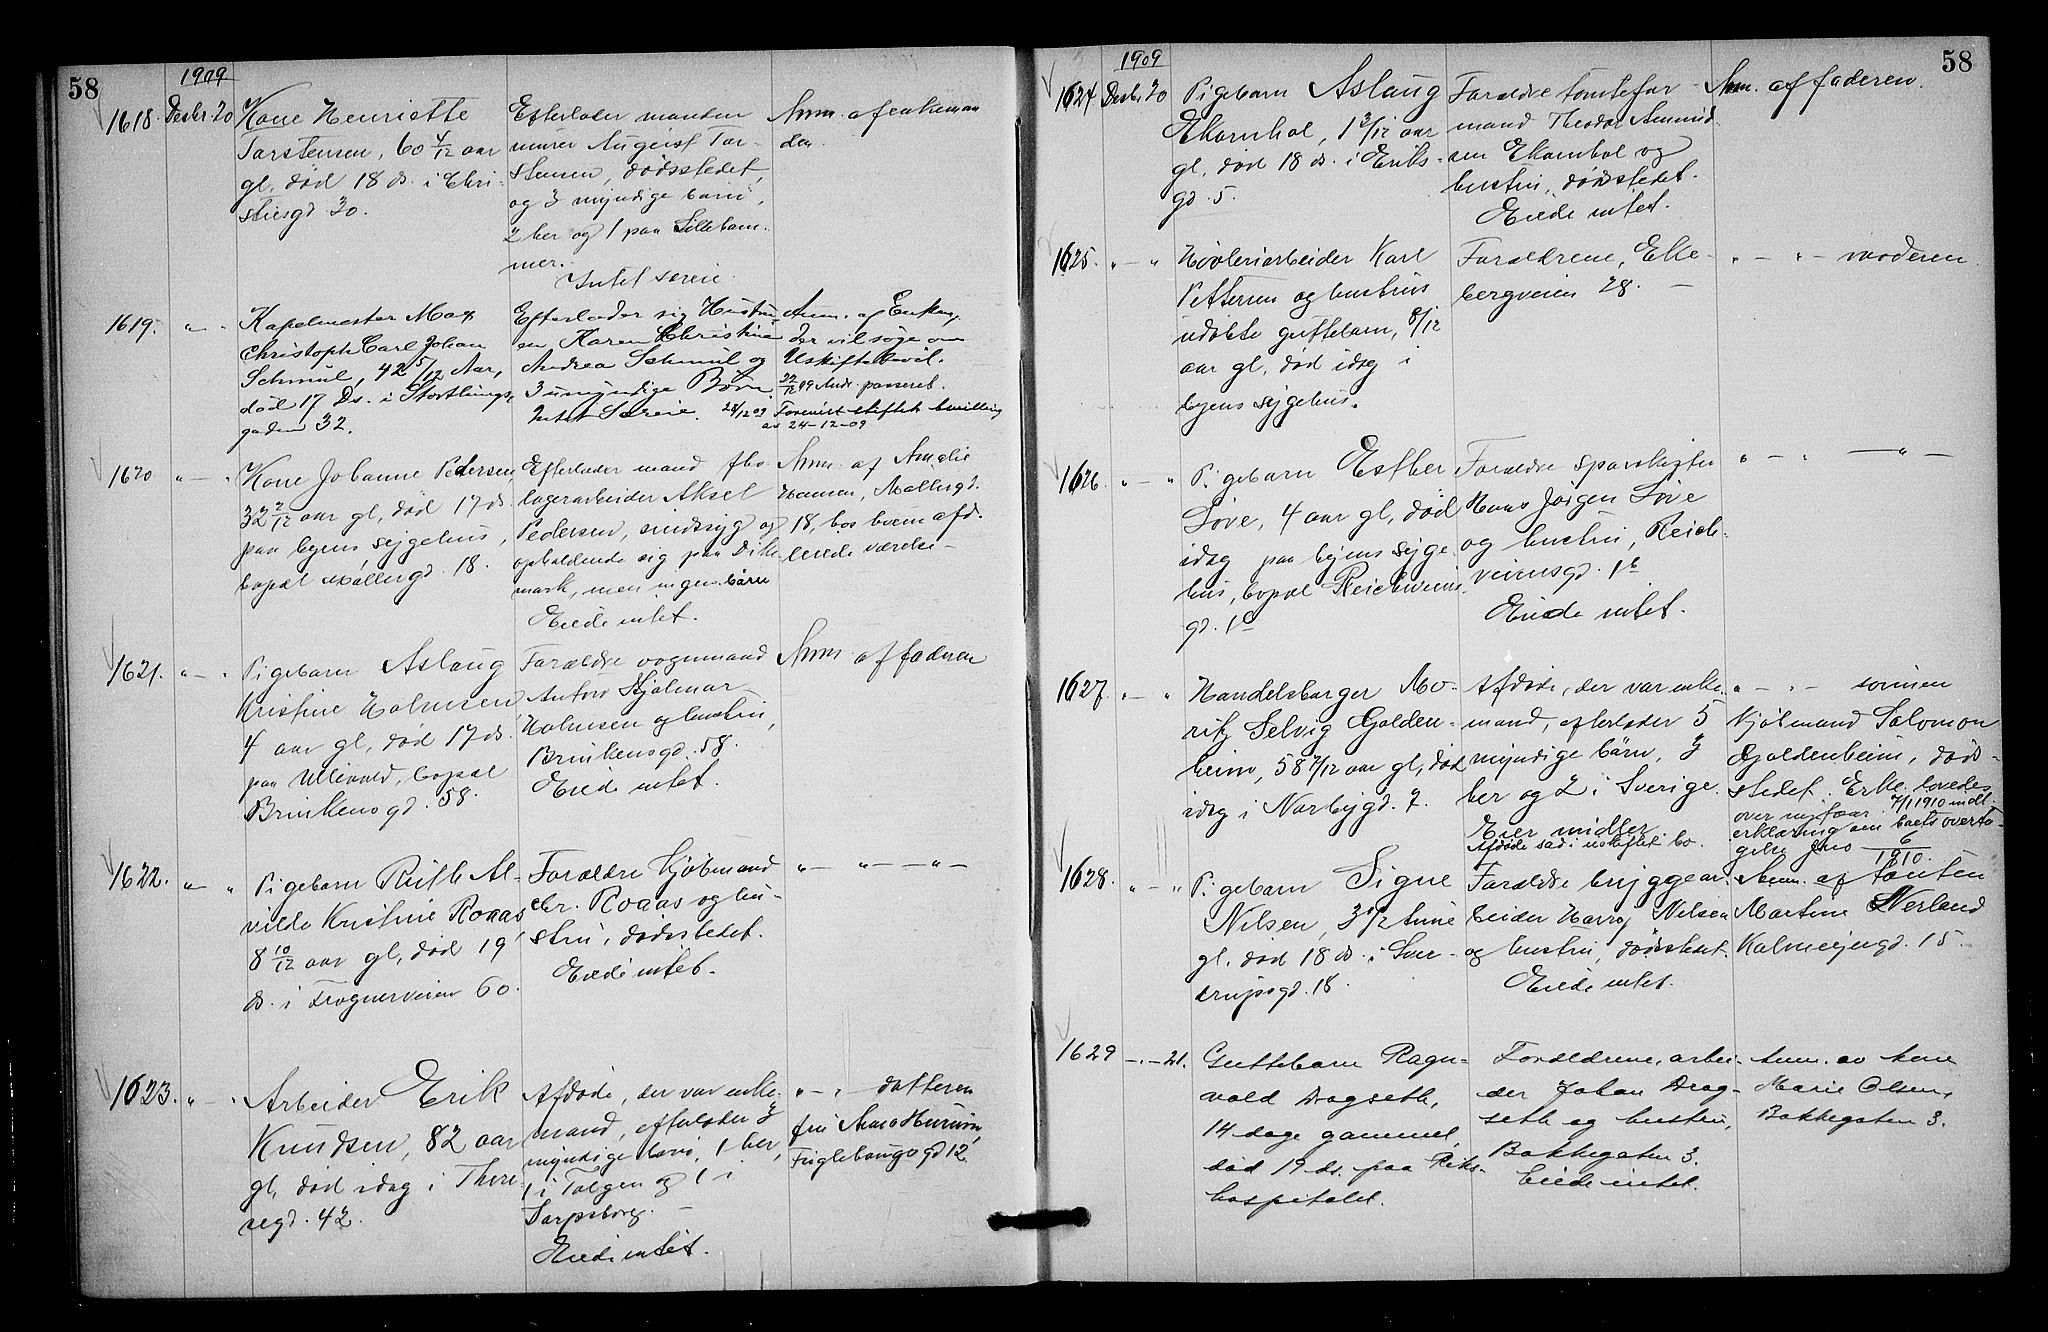 58
1909
1618. Desbr. 20
Kone Henriette
Torstensen, 60 4/12 aar
gl, død 18 ds. i Chri-
stiesgd 30.
Efterlader manden
murer August Tor-
stensen, dødsstedet,
og 3 myndige børn,
2 her og 1 paa Lilleham-
mer.
Intet særeie.
Anm. af enkeman
den.
1619. " — "
Kapelmester Max
Christoph Carl Johan
Schmül, 42 5/12 Aar,
død 17 Ds. i Stortings-
gaden 32.
Efterlader sig Hustru-
en Karen Christine
Andrea Schmül og
3 umyndige Børn.
Intet Særeie.
Anm. af Enken,
der vil søge om
Uskiftebevil.
passeret.
24/12 09 Forevist skifteb. bevilling
av 24-12-09
1620 " — "
Kone Johanne Pedersen,
32 2/12 aar gl, død 17 ds.
paa byens sygehus,
bopæl Møllergd. 18.
Efterlader mand fhv.
lagerarbeider Aksel
Pedersen, sindssyg og
opholdende sig paa Dike
mark, men ingen børn
Eiede intet.
Anm. af Amalie
Hansen, Møllergd.
18, hos hvem afd.
leiede værelse —
1621. " — "
Pigebarn Aslaug
Kristine Holmsen
4 aar gl, død 17 ds.
paa Ullevold, bopæl
Brinkensgd. 58.
Forældre vognmand
Anton Hjalmar
Holmsen og hustru,
Brinkensgd. 58.
Eiede intet.
Anm. af faderen
1622. " — "
Pigebarn Ruth Al-
vilde Kristine Roaas
8 10/12 aar gl, død 19
ds. i Frognerveien 60.
Forældre kjøbmand
Chr. Roaas og hu-
stru, dødsstedet.
Eiede intet.
" — " — — " —
1623. " — "
Arbeider Erik
Knudsen, 82 aar
gl, død idag i There-
segd. 42.
Afdøde, der var enke-
mand, efterlader 3
myndige børn, 1 her,
1 i Tolgen og 1 i
Sarpsborg. —
Eiede intet.
" — " datteren
fru Anna Hurum,
Fuglehaugsgd 12
58
1909
1624 Desbr. 20
Pigebarn Aslaug
Ekornhol, 1 3/12 aar
gl, død 18 ds. i Eriks-
gd. 5.
Forældre tomtefor-
mand Theodor Amund-
sen Ekornhol og
hustru, dødsstedet.
Eiede intet.
Anm. af faderen.
1625. " — "
Høvleriarbeider Karl
Pettersen og hustrus
udøbte guttebarn, 8/12
aar gl, død idag i
byens sygehus.
Forældrene, Eke-
bergveien 28. —
" — " — moderen
1626. " — "
Pigebarn Esther
Løve, 4 aar gl, død
idag paa byens syge-
hus, bopæl Reichweins
gd. 1b
Forældre sporvkusk
Hans Jørgen Løve
og hustru, Reich-
weinsgd. 1b
Eiede intet.
" — " — " —
1627. " — "
Handelsborger Mo-
ritz Selvig Golden-
heim, 58 7/12 aar gl, død
idag i Norbygd. 7.
Afdøde, der var enke-
mand, efterlader 5
myndige børn, 3
her og 2 i Sverige.
Eier midler
Afdøde sad i uskiftet bo.
" — " — sønnen
kjøbmand Salomon
Goldenheim, døds-
stedet. Erkl. lovedes
over nyttaar. 7/1 1910 modt.
erklæring om boets overta-
gelse 6/1 1910.
1628. " — "
Pigebarn Signe
Nilsen, 3 1/2 time
gl, død 18 ds. i Sver-
drupsgd. 18.
Forældre bryggear-
beider Harry Nilsen
og hustru, dødsstedet.
Eiede intet.
Anm. af tanten
Martine Nerland
Kalmeyergd. 15
1629 — . — 21.
Guttebarn Ragn-
vald Dragseth,
14 dage gammel,
død 19 ds. paa Riks-
hospitalet.
Forældrene, arbei-
der Johan Drag-
seth og hustru,
Bakkegaten 3.
Eiede intet.
Anm. av kone
Marie Olsen,
Bakkegaten 3.